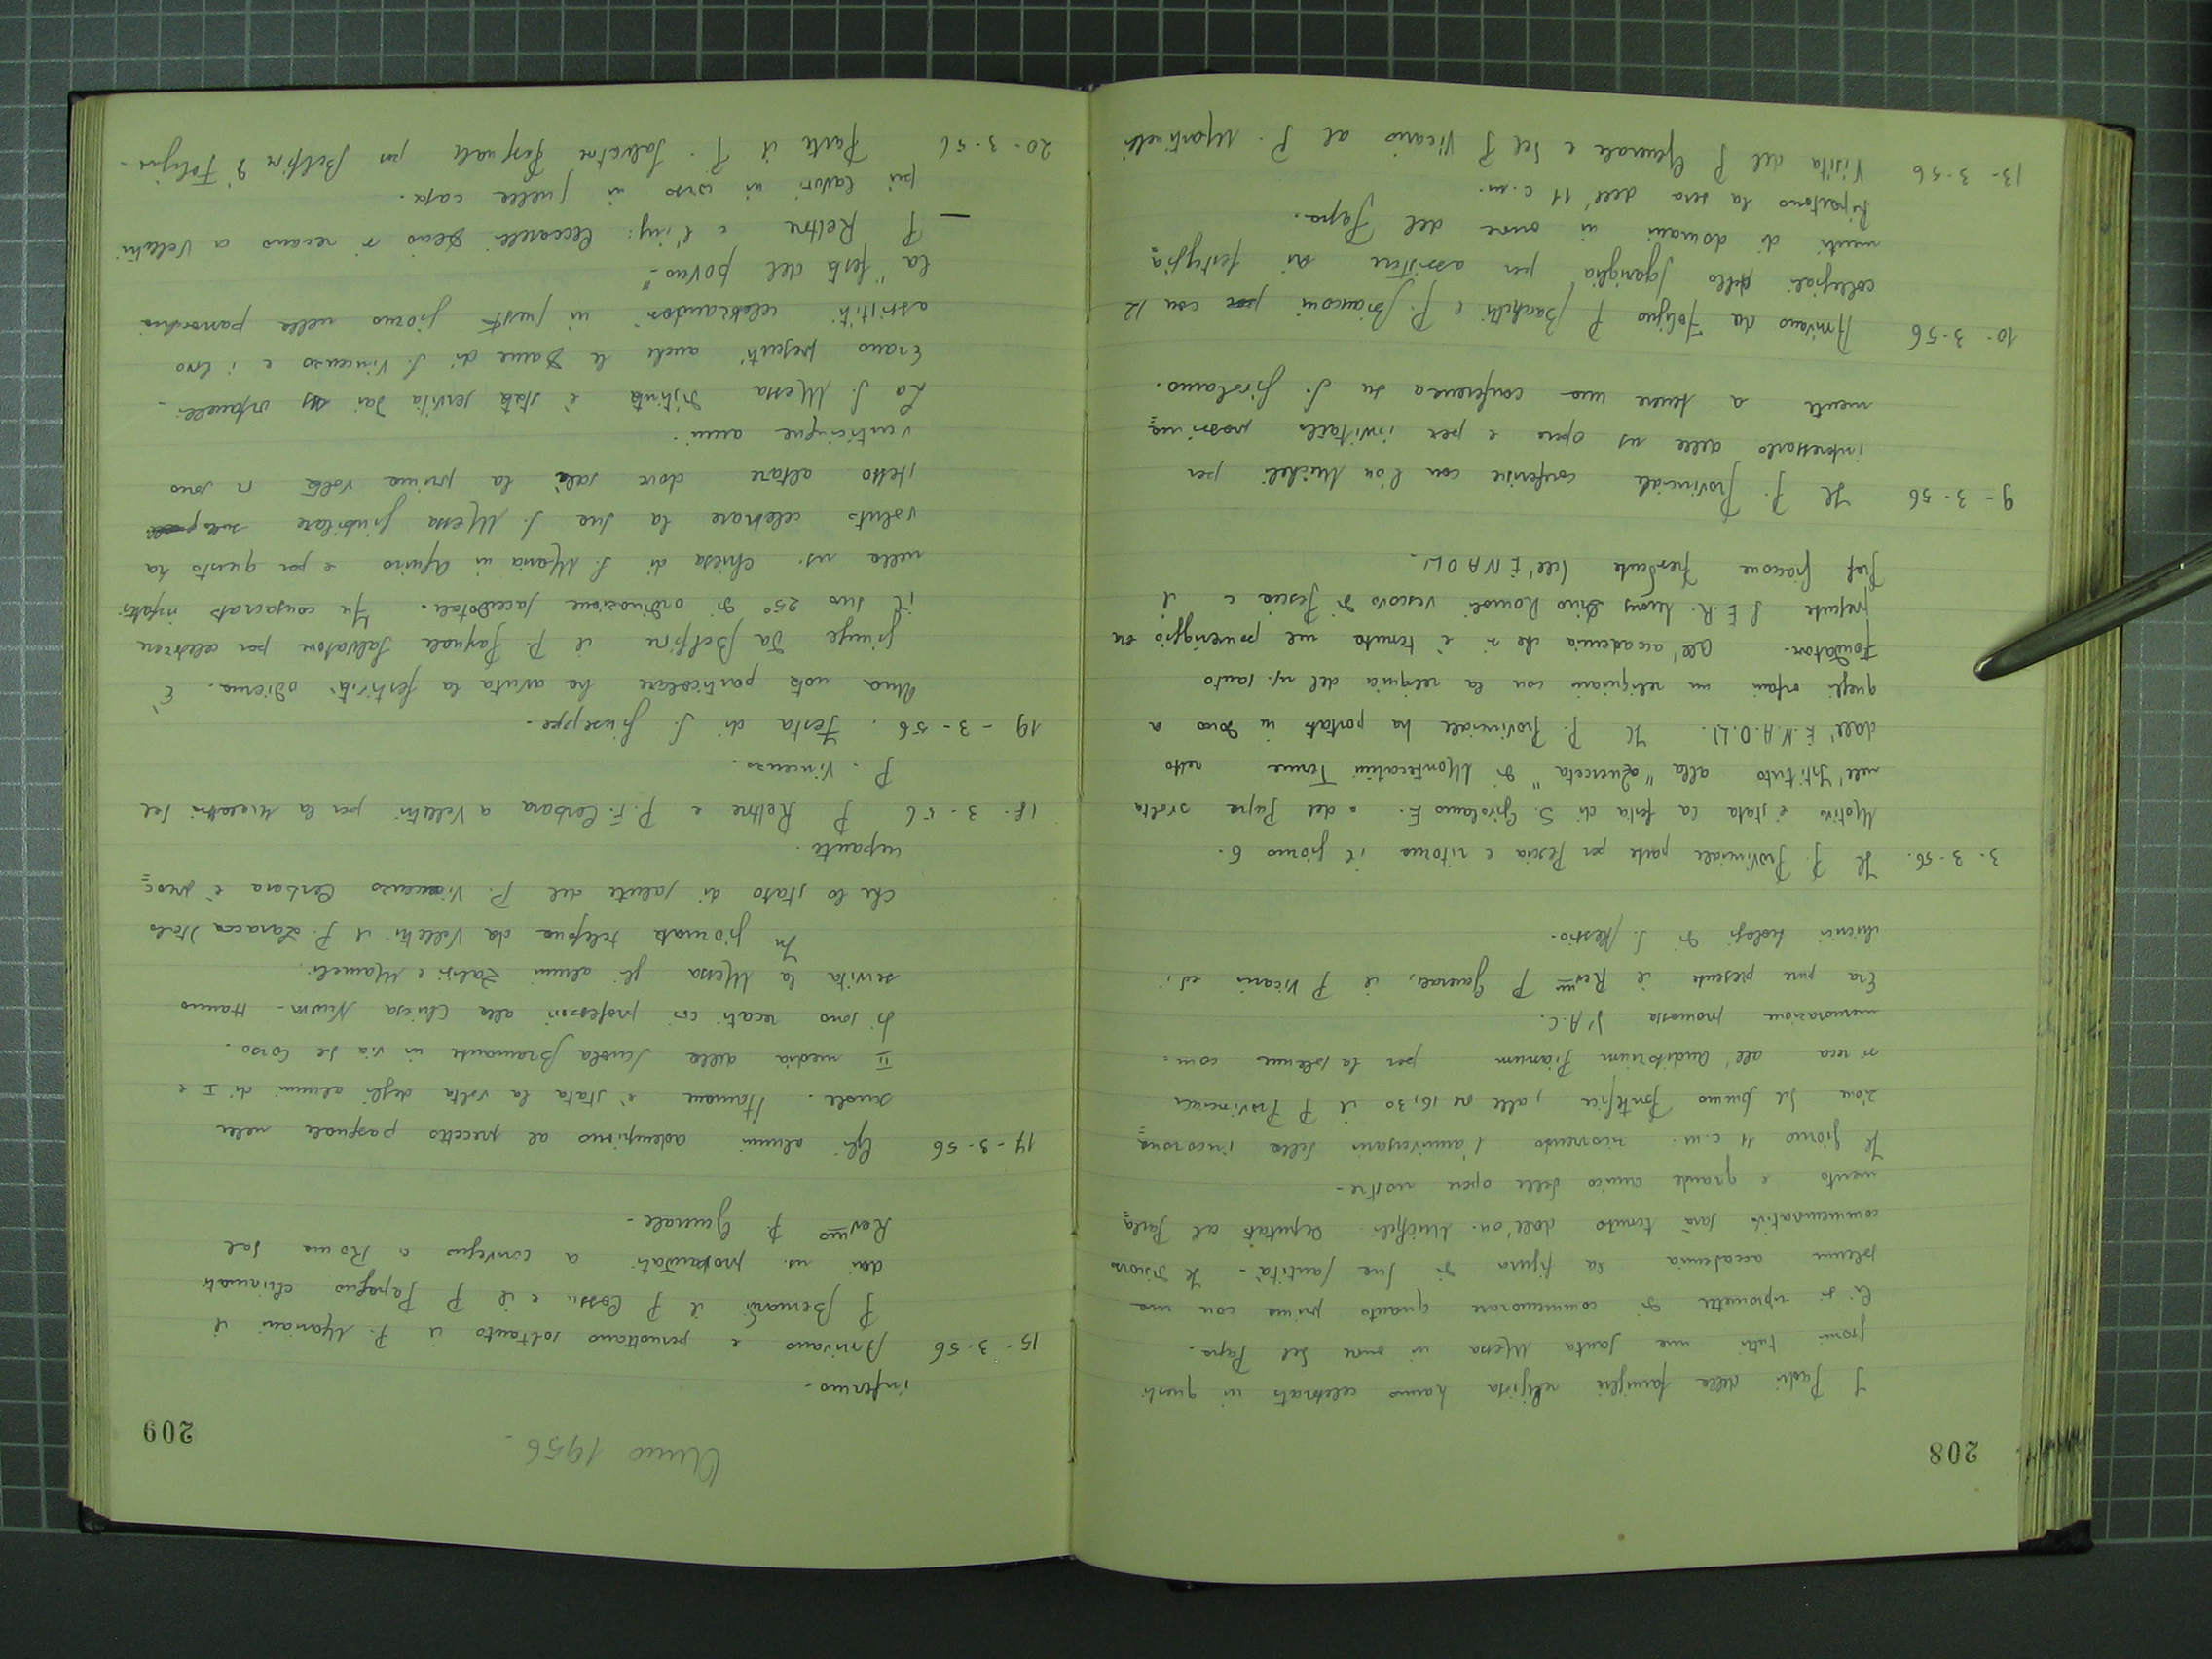 208
I Padri della famiglia religiosa hanno celebrato in questi
giorni tutti una santa Messa in onore del Papa.
Ci si ripromette di commemorare quanto prima con una
solenne accademia la figura di Sua Santità - Il discorso
commemorativo sarà tenuto dall'on. Micheli deputato al Parla=
mento e grande amico delle opere nostre -
Il giorno 11 c.m. ricorrendo l'anniversario della incorona=
zione del sommo Pontefice, alle ore 16,30 il P. Provinciale
si reca all'Auditorium Pianum per la solenne com=
memorazione promossa d'A.C.
Era pure presente il Rev.mo P. Generale, il P. Vicario ed i
chierici teologi di S. Alessio.
3-3-56. Il P. Provinciale parte per Pescia e ritorna il giorno 6.
Motivo è stata la festa di S. Girolamo E. e del Papa svolta
nell'Istituto alla "Querceta" di Montecatini Terme retto
dall'E.N.A.O.LI. Il P. Provinciale ha portato in dono a
quegli orfani un reliquiario con la reliquia del ns. santo
Fondatore. All'accademia che si è tenuta nel pomeriggio era
presente S.E.R. Mons Dino Romoli vescovo di Pescia e il
Prof Giaccone Presidente dell'ENAOLI.
9-3-56 Il P. Provinciale conferisce con l'on Micheli per
interessarlo delle ns opere e per invitarlo prossima=
mente a tenere una conferenza su S. Girolamo.
10-3-56 Arrivano da Foligno P. Bacchetti e P. Bianconi con 12
collegiali dello Sgariglia per assistere ai festeggia=
menti di domani in onore del Papa.
Ripartono la sera dell'11 c.m.
13-3-56 Visita del P. Generale e del P. Vicario al P. Martinelli
209
Anno 1956 -
infermo -
15-3-56 Arrivano e pernottano soltanto il P. Mariani il
P. Bernardi il P. Cossu e il P. Papagno chiamati
dai ns. probandati a convegno a Roma dal
Rev.mo P. Generale -
17-3-56 Gli alunni adempiono al precetto pasquale nelle
scuole. Stamane è stata la volta degli alunni di I e
II media della Scuola Bramante in via del Corso.
Si sono recati coi professori alla Chiesa Nuova - Hanno
servita la Messa gli alunni Zalzi e Mameli.
In giornata telefona da Velletri il P. Zaracca Italo
che lo stato di salute del P. Vincenzo Cerbara è preoc=
cupante.
18-3-56 P. Rettore e P. F. Cerbara a Velletri per la malattia del
P. Vincenzo.
19-3-56. Festa di S. Giuseppe -
Una nota particolare ha avuta la festività odierna. È
giunto da Belfiore il P. Pasquale Salvatore per celebrare
il suo 25° di ordinazione sacerdotale. Fu consacrato infatti
nella ns. chiesa di S. Maria in Aquiro e per questo ha
voluto celebrare la sua S. Messa giubilare sullo
stesso altare dove salì la prima volta or sono
venticinque anni.
La S. Messa distinta è stata servita dai orfanelli -
Erano presenti anche le Dame di S. Vincenzo e i loro
assistiti celebrandosi in questo giorno nella parrocchia
la "festa del povero" -
— P. Rettore e l'ing. Ceccarelli Decio si recano a Velletri
pei lavori in corso in quella casa.
20-3-56 Parte il P. Salvatore Pasquale per Belfiore di Foligno -